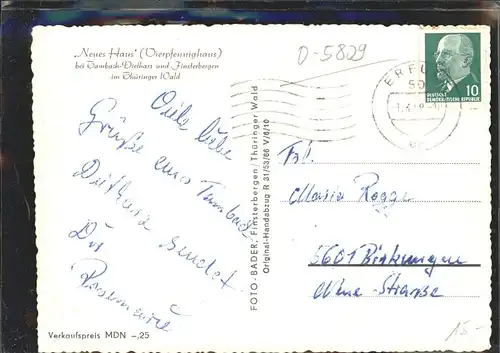 „Neues Haus" (Vierpfennighaus)
bei Tambach-Dietharz und Finsterbergen
im Thüringer Wald
D-5809
ERFU
50
DEUTSCHE
DEMOKRATISCHE REPUBLIK
10
Viele liebe
Grüße aus Tambach
Dietharz sendet
Dir
Rosemarie
FOTO-BADER, Finsterbergen/Thüringer Wald
Original-Handabzug R 31/53/66 V/6/10
Frl.
Maria Rogge
5601 Birkungen
Straße
Verkaufspreis MDN –,25
15-